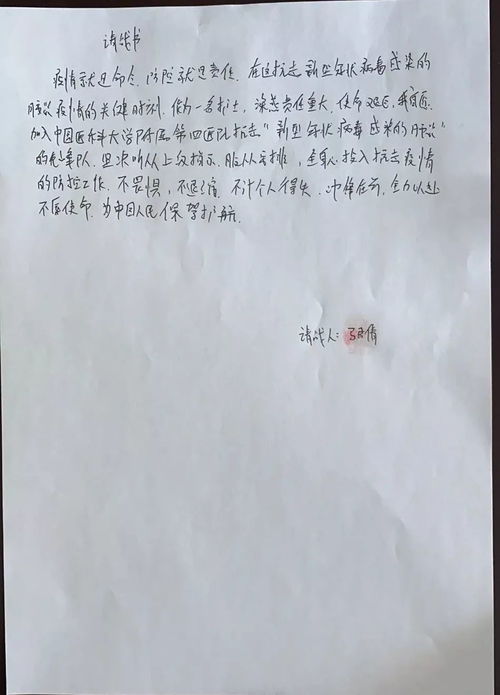 请战书
疫情就是命令,防控就是责任,在这抗击新型冠状病毒感染的
肺炎疫情的关键时刻,作为一名护士,深感责任重大,使命艰巨,我自愿
加入中国医科大学附属第四医院抗击“新型冠状病毒感染的肺炎”
的先锋队,坚决听从上级指示,服从安排,全身心投入抗击疫情
的防控工作,不畏惧,不退缩,不计个人得失,冲锋在前,全力以赴
不辱使命,为中国人民保驾护航.
请战人:倩